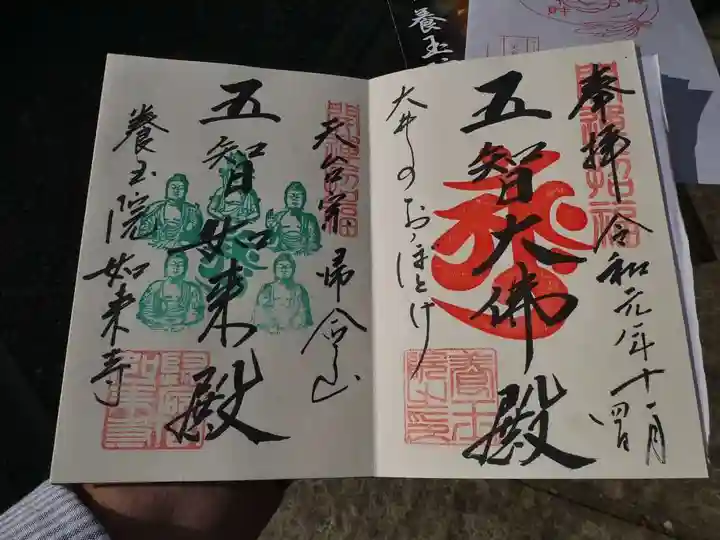 奉拝 令和元年十一月四日
五智大佛殿
大井のおゝほとけ
天台宗 帰命山
五智如来殿
養玉院如来寺
養玉